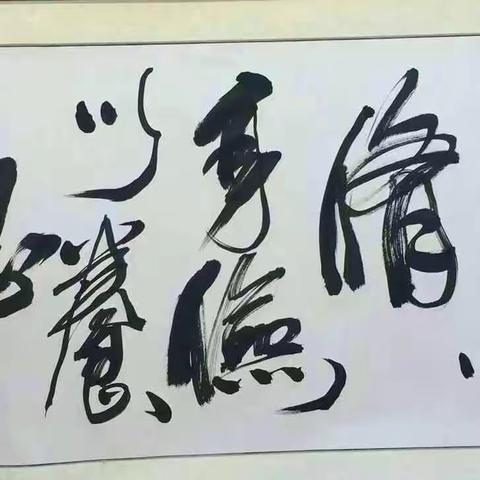 脩
身儉
以養